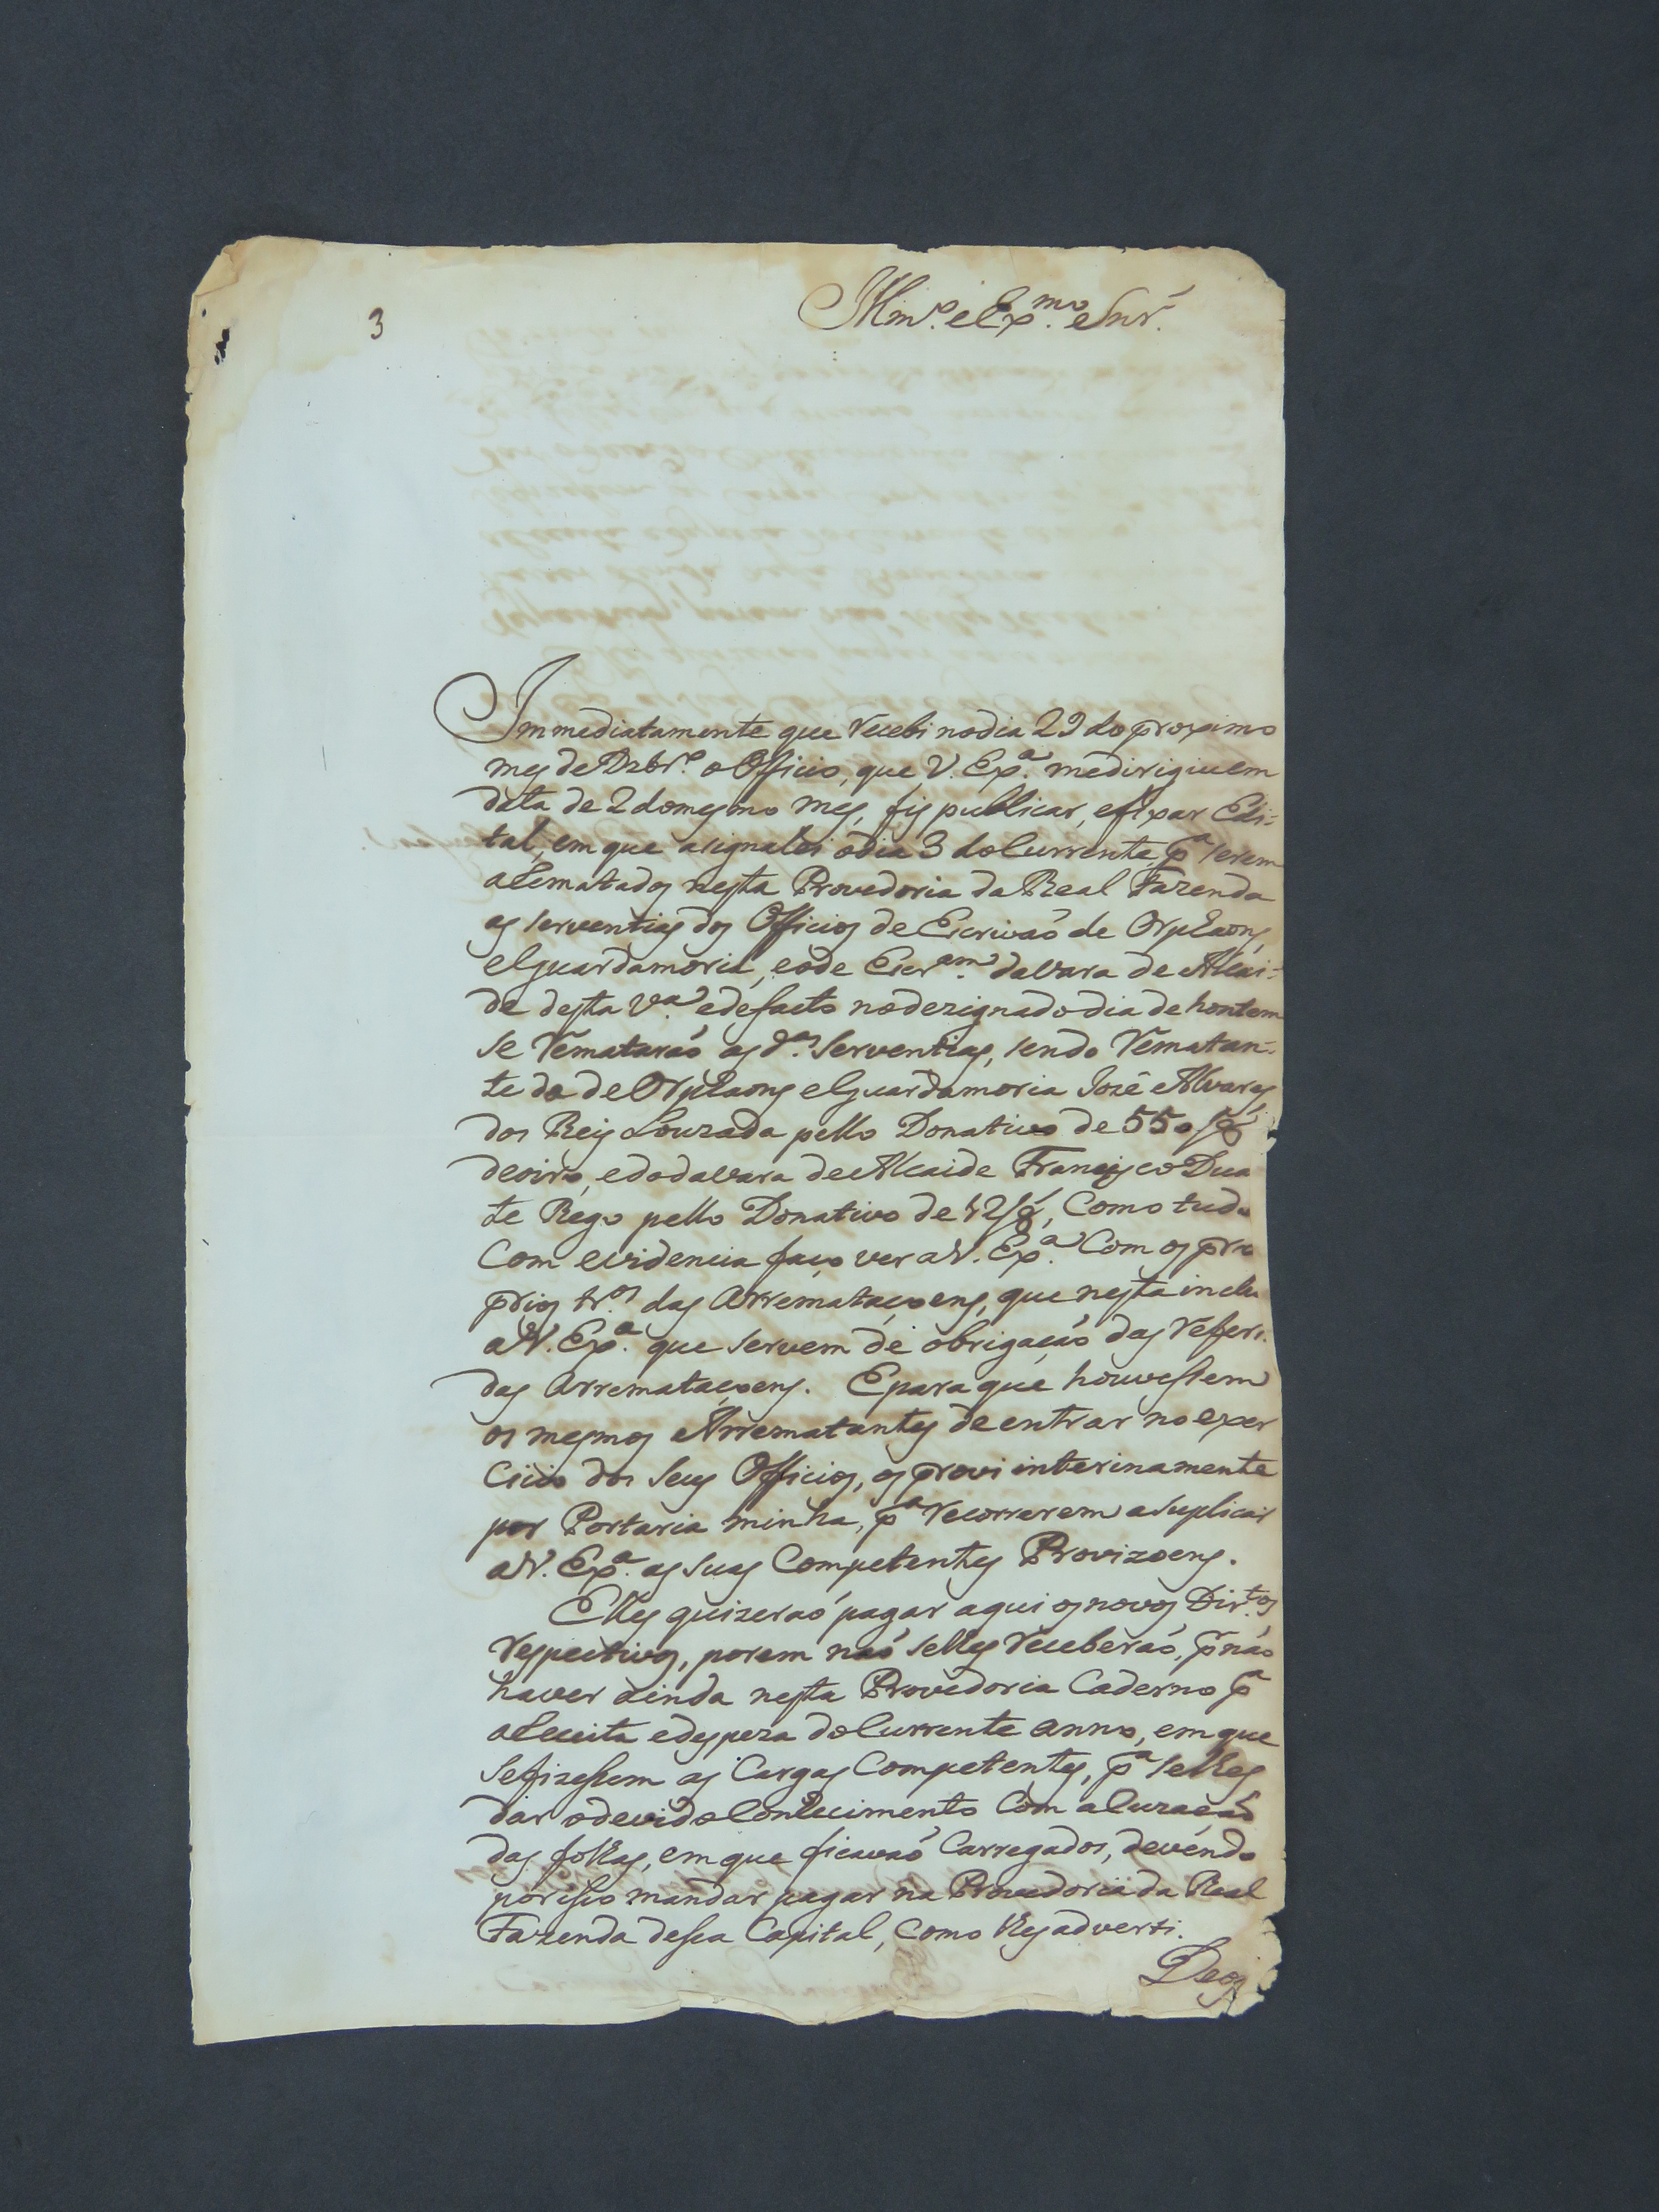 3
Illm.º e Exp.mo Snr.
Immediatamente que recebi no dia 29 do proximo
mes de Dzbr.º o Officio, que V. Exp.ª me dirigiu em
data de 2 do mesmo mes, fis publicar, e fixar Edi=
tal, em que asignalei o dia 3 do Currente, p.ª serem
aRematados nesta Provedoria da Real Fazenda
as serventias dos Officios de Escrivaõ de Orphaons,
e Guardamoria, e o de Escr.am da vara de Alcai=
de desta V.ª e de facto no dezignado dia de hontem
se remataraõ as d.as Serventias, sendo Rematan=
te da de Orphaons e Guardamoria Jozé Alvares
dos Reis Louzada pello Donativo de 550/8
de oiro, e do da vara de Alcaide Francisco Dua
te Rego pello Donativo de 12/8, Como tudo
Com evidencia faço ver a V. Exp.ª Com os pro
prios tr.os das Arremataçoens, que nesta inclu
a V. Exp.ª que servem de obrigaçaõ das Referi
das Arremataçoens. E para que houvessem
os mesmos Arrematantes de entrar no exer
cicio dos seus Officios, os provi interinamente
por Portaria minha, p.ª recorrerem a suplicar
a V. Exp.ª as suas Competentes Provizoens.
Elles quizeraõ pagar aqui os novos Dir.tos
respectivos, porem naõ selhes receberaõ, pr naõ
haver ainda nesta Provedoria Caderno p.ª
a Receita e despeza do Currente anno, em que
se fizessem as Cargas Competentes, p.ª selhes
dar o devido Conhecimento Com a Luzaçaõ
das folhas, em que ficavaõ Carregados, devendo
por isso mandar pagar na Provedoria da Real
Fazenda dessa Capital, Como lhes adverti.
Deos